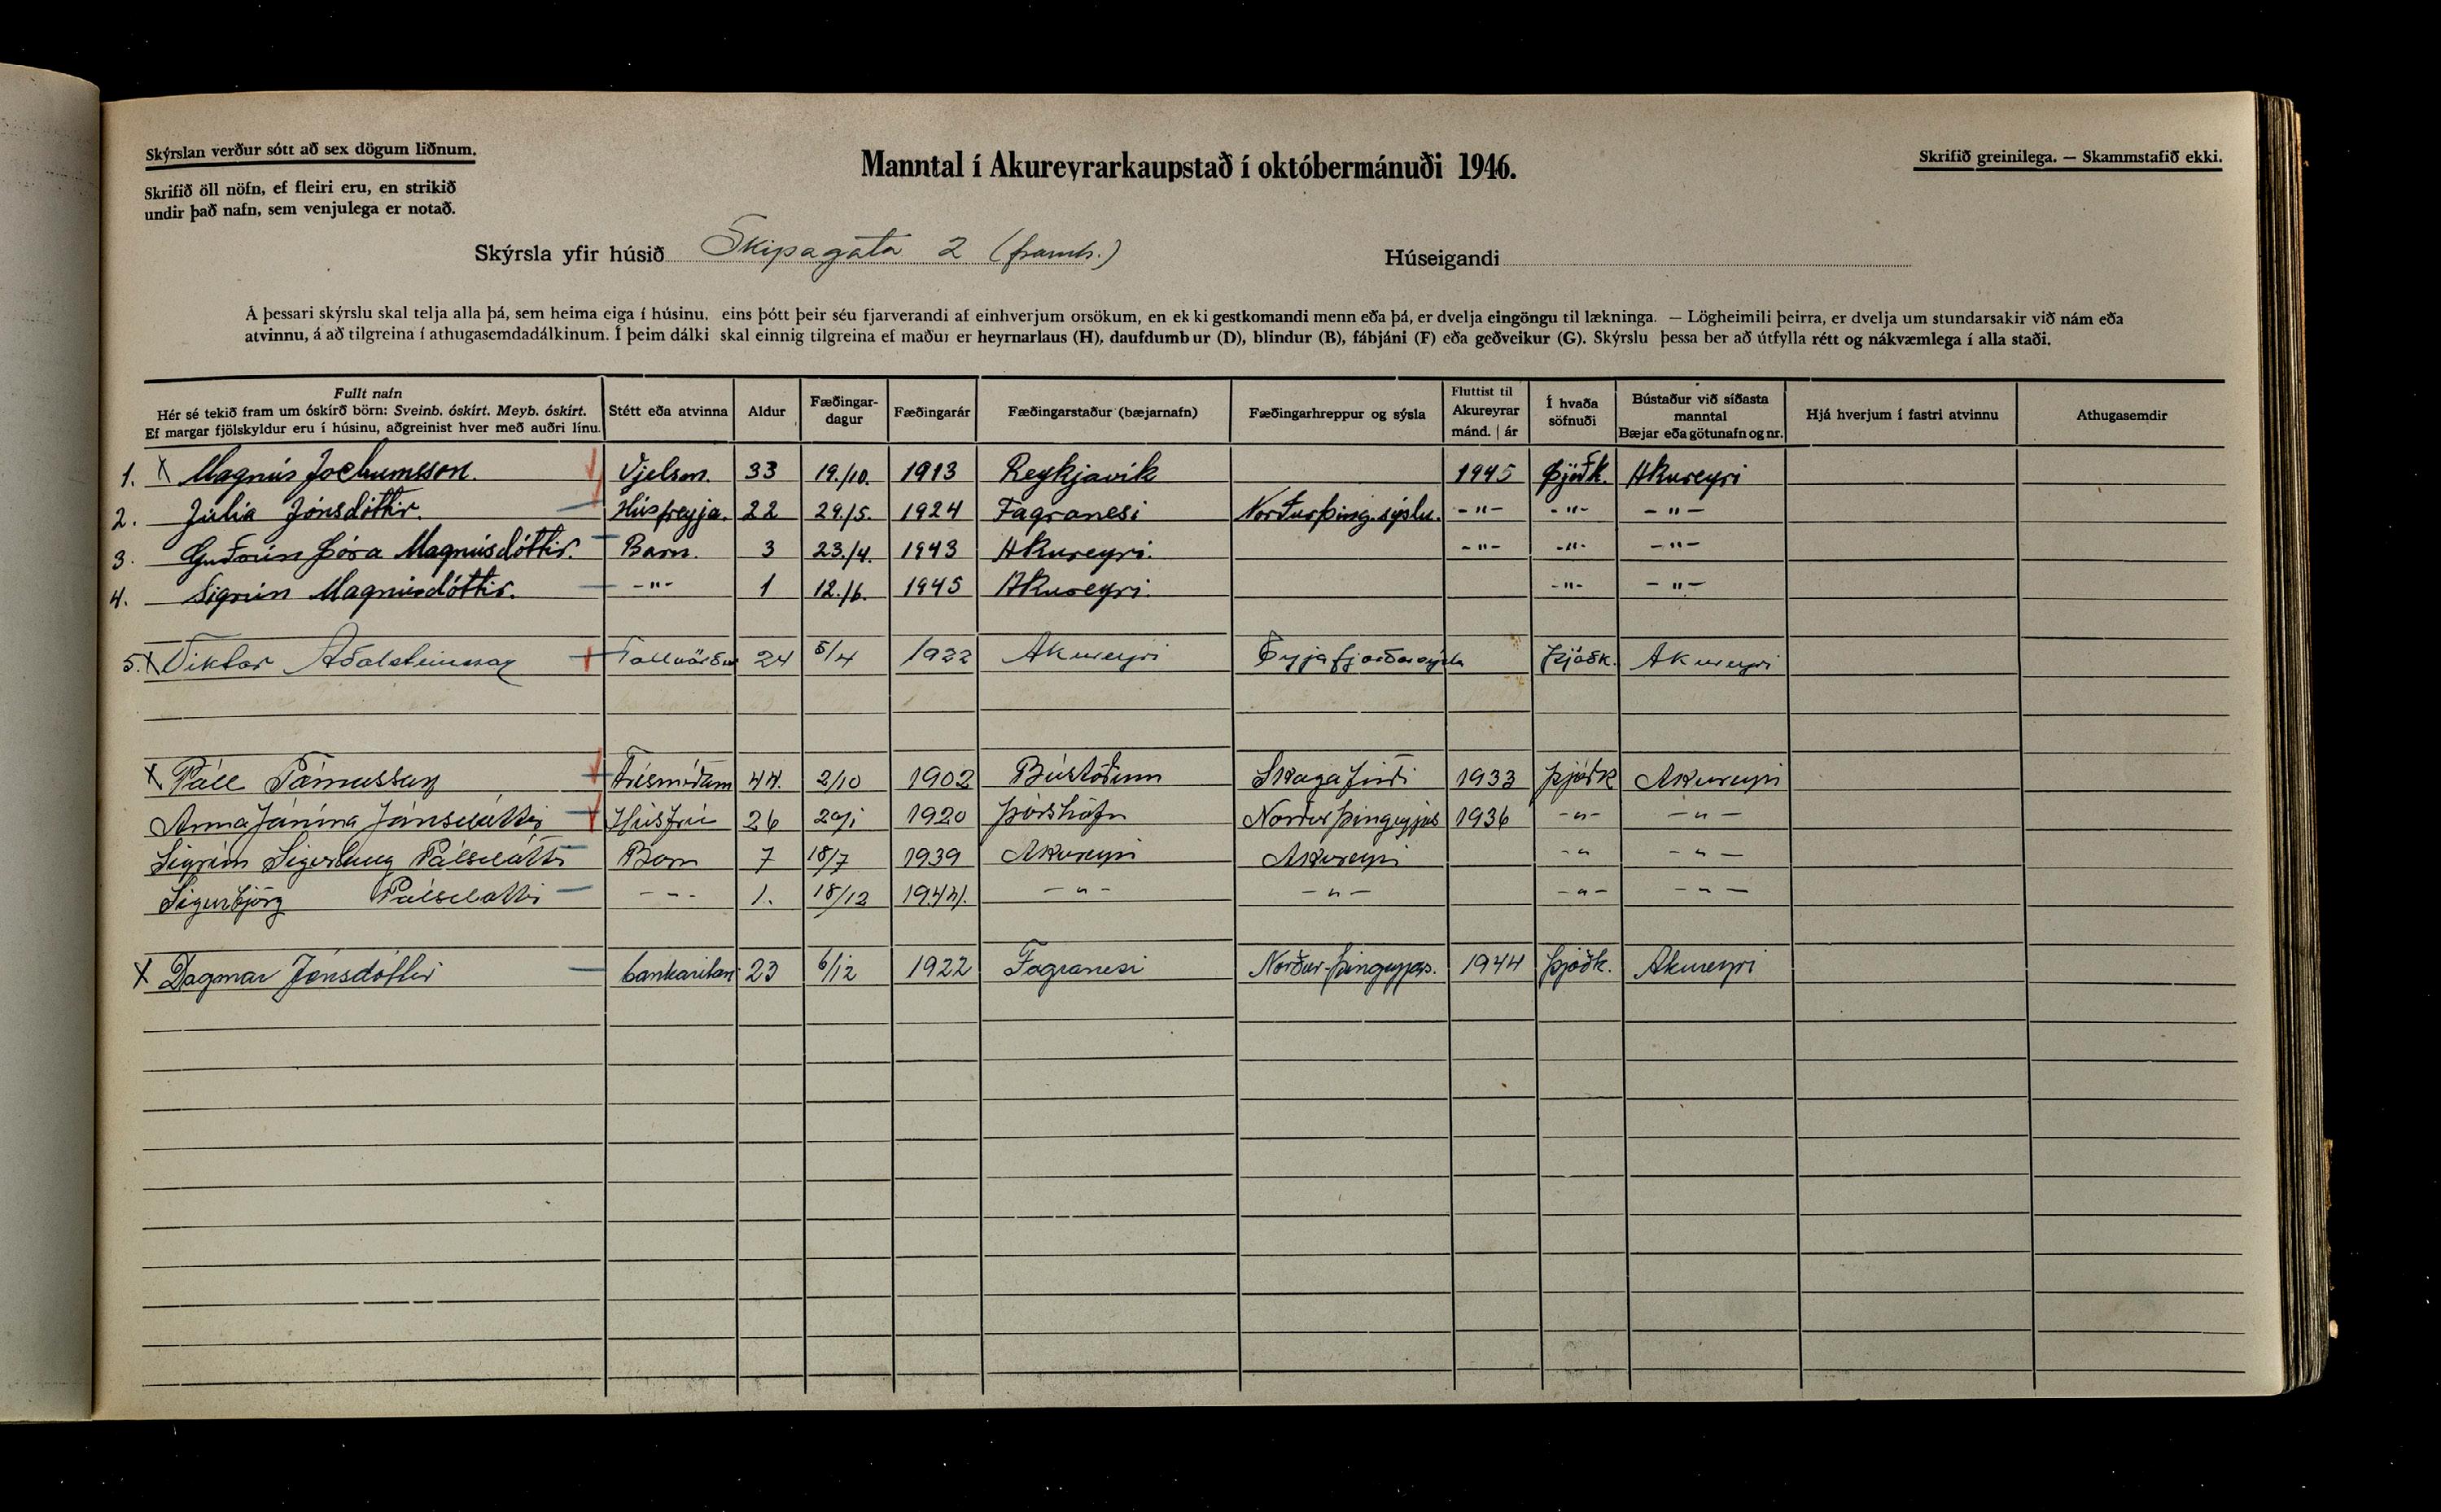 Skýrslan verður sótt að sex dögum liðnum.
Skrifið öll nöfn, ef fleiri eru, en strikið
undir það nafn, sem venjulega er notað.
Manntal í Akureyrarkaupstað í októbermánuði 1946.
Skrifið greinilega. — Skammstafið ekki.
Skýrsla yfir húsið Skipagata 2 (framh.) Húseigandi
Á þessari skýrslu skal telja alla þá, sem heima eiga í húsinu, eins þótt þeir séu fjarverandi af einhverjum orsökum, en ekki gestkomandi menn eða þá, er dvelja eingöngu til lækninga. — Lögheimili þeirra, er dvelja um stundarsakir við nám eða
atvinnu, á að tilgreina í athugasemdadálkinum. Í þeim dálki skal einnig tilgreina ef maður er heyrnarlaus (H), daufdumbur (D), blindur (B), fábjáni (F) eða geðveikur (G). Skýrslu þessa ber að útfylla rétt og nákvæmlega í alla staði.
Fullt nafn
Hér sé tekið fram um óskírð börn: Sveinb. óskírt. Meyb. óskírt.
Ef margar fjölskyldur eru í húsinu, aðgreinist hver með auðri línu.
Stétt eða atvinna
Aldur
Fæðingar-
dagur
Fæðingarár
Fæðingarstaður (bæjarnafn)
Fæðingarhreppur og sýsla
Fluttist til
Akureyrar
mánd. | ár
Í hvaða
söfnuði
Bústaður við síðasta
manntal
Bæjar eða götunafn og nr.
Hjá hverjum í fastri atvinnu
Athugasemdir
1. X Magnús Jochumsson. Vjelsm. 33 19./10. 1913 Reykjavík 1945 Þjóðk. Akureyri
2. Júlía Jónsdóttir. Húsfreyja. 22 29./5. 1924 Fagranesi Norðurþing.sýslu. -"- -"- -"-
3. Guðrún Þóra Magnúsdóttir. Barn. 3 23./4. 1943 Akureyri. -"- -"- -"-
4. Sigrún Magnúsdóttir. -"- 1 12./6. 1945 Akureyri. -"- -"-
5. X Viktor Aðalsteinsson Tollvörður 24 5/4 1922 Akureyri Eyjafjarðarsýsla Þjóðk. Akureyri
X Páll Tómasson Trésmíðam 44. 2/10 1902 Bústöðum Skagafirði 1933 Þjóðk Akureyri
Anna Jónína Jónsdóttir Húsfrú 26 1920 Þórshöfn Norður Þingeyjas 1936 -"- -"-
Sigrún Sigurlaug Pálsdóttir Barn 7 18/7 1939 Akureyri Akureyri -"- -"-
Sigurbjörg Pálsdóttir -"- 1. 18/12 1944. -"- -"- -"- -"-
X Dagmar Jónsdóttir bankaritari 23 6/12 1922 Fagranesi Norður-Þingeyjas. 1944 Þjóðk. Akureyri